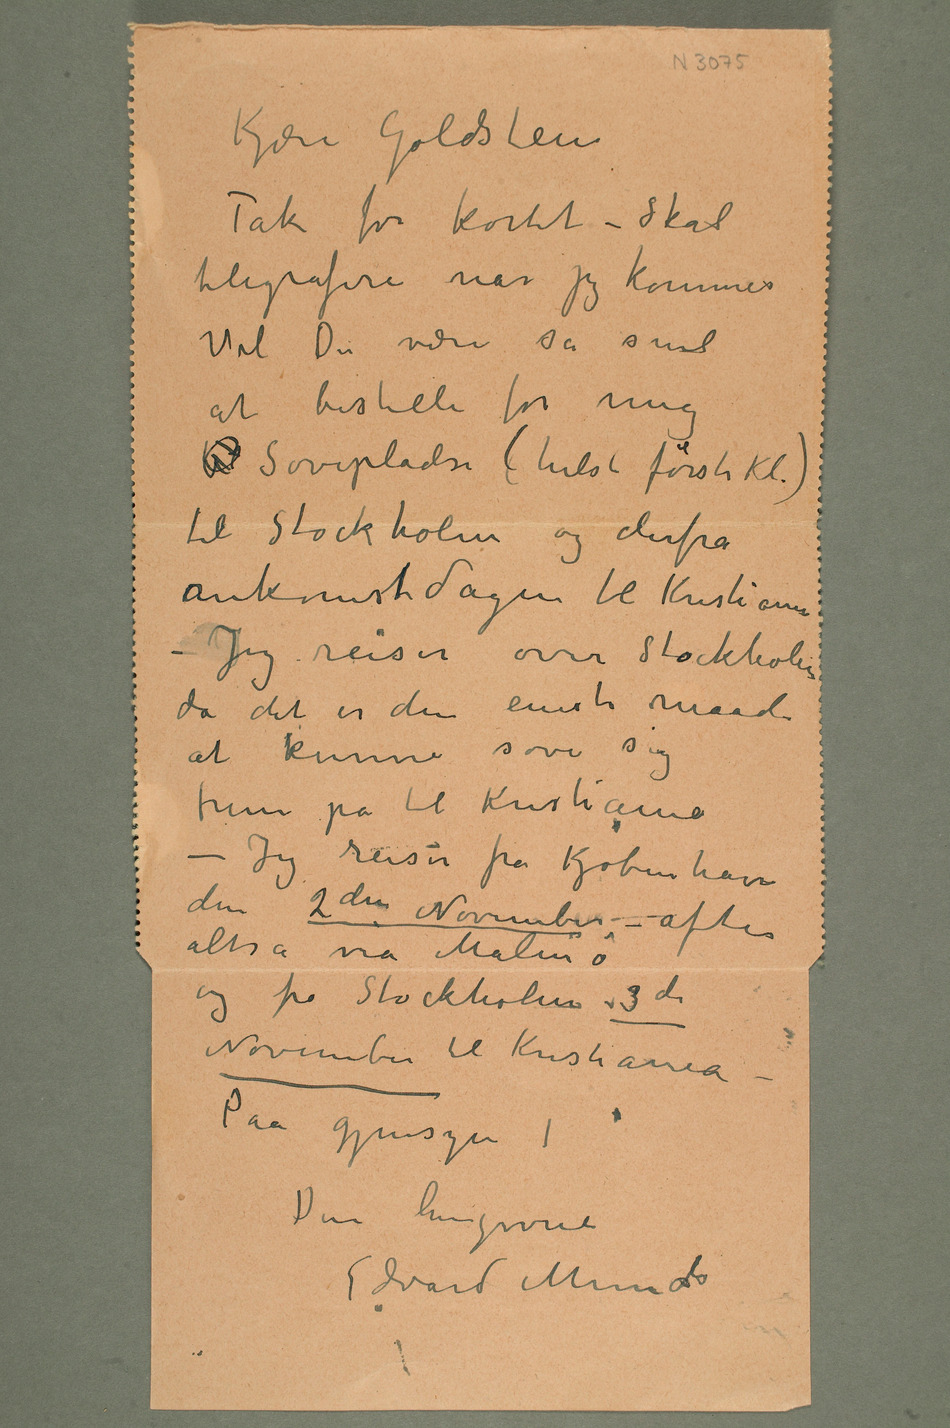 N 3075
Kjære Goldstein
Tak for kortet – Skal
telegrafere når jeg kommer
Vil Du være så snil
at bestille for mig
Soveplads (helst første Kl.)
til Stockholm og derfra
ankomstdagen til Kristiania
– Jeg reiser over Stockholm
da det er den eneste maade
at kunne sove sig
frem på til Kristiania
– Jeg reiser fra Kjøbenhavn
den 2den November – aften
altså via Malmö
og fra Stockholm 3de
November til Kristiania –
Paa gjensyn!
Din hengivne
Edvard Munch